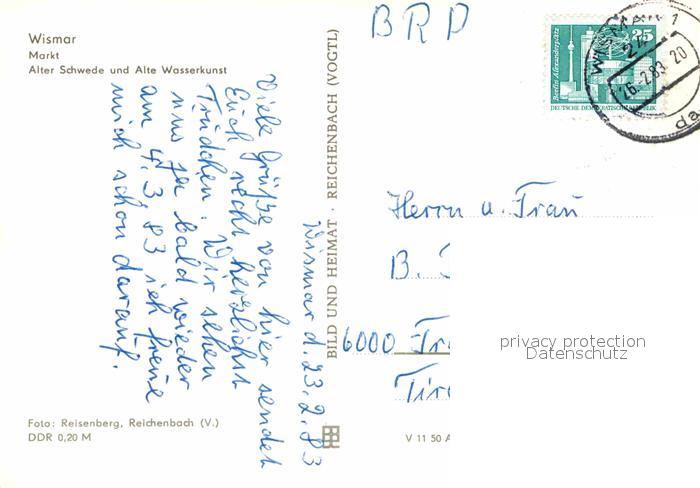 Wismar
Markt
Alter Schwede und Alte Wasserkunst
Wismar d. 23.2.83
Viele Grüße von hier sendet
Euch recht herzlichst
Trudchen. Wir sehen
uns ja bald wieder
am 4.3.83 ich freue
mich schon darauf.
Foto: Reisenberg, Reichenbach (V.)
DDR 0,20 M
BILD UND HEIMAT · REICHENBACH (VOGTL)
V 11 50 A
BRD
Berlin, Alexanderplatz
25
DEUTSCHE DEMOKRATISCHE REPUBLIK
WISMAR 1
24
26.-2.83 20
da
Herrn u. Frau
B.
6000 Fr
privacy protection
Datenschutz